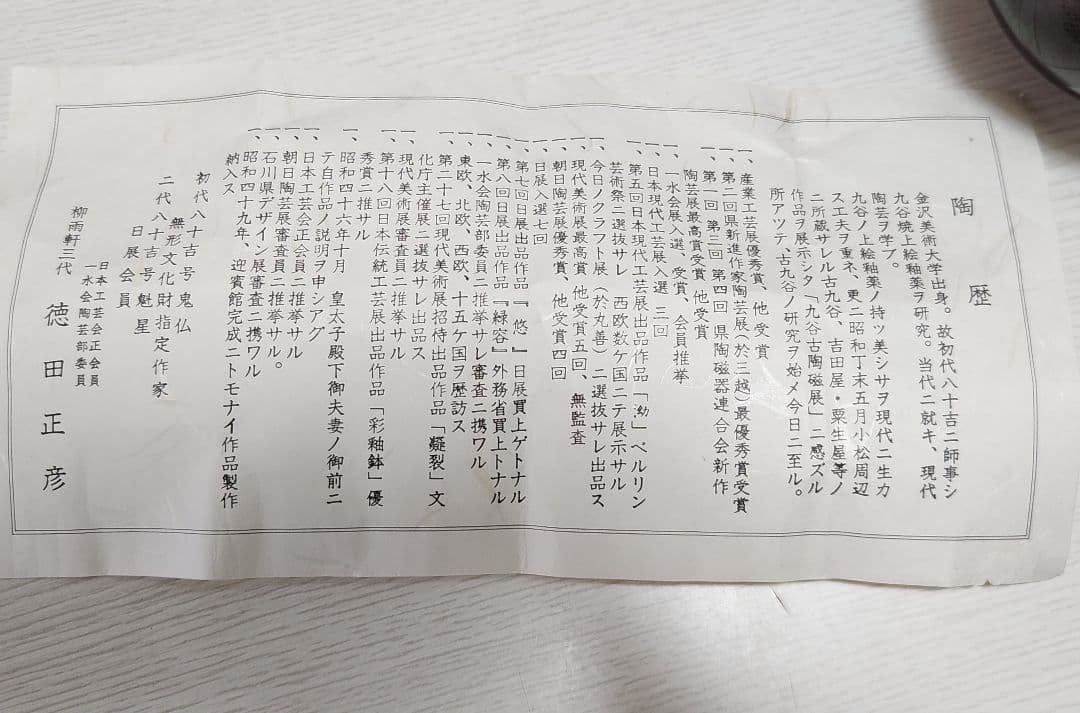 陶歴
金沢美術大学出身。故初代八十吉ニ師事シ
九谷焼上絵釉薬ヲ研究。当代ニ就キ、現代
陶芸ヲ学ブ。
九谷ノ上絵釉薬ノ持ッ美シサヲ現代ニ生カ
ス工夫ヲ重ネ、更ニ昭和丁末五月小松周辺
ニ所蔵サレル古九谷、吉田屋・粟生屋等ノ
作品ヲ展示シタ「九谷古陶磁展」ニ感ズル
所アツテ、古九谷ノ研究ヲ始メ今日ニ至ル。
一、産業工芸展優秀賞、他受賞
一、第二回県新進作家陶芸展(於三越)最優秀賞受賞
一、第一回 第三回 第四回 県陶磁器連合会新作
陶芸展最高賞受賞、他受賞
一、一水会展入選、受賞、会員推挙
一、日本現代工芸展入選 三回
一、第五回日本現代工芸展出品作品「泑」ベルリン
芸術祭ニ選抜サレ 西欧数ケ国ニテ展示サル
一、今日ノクラフト展(於丸善)ニ選抜サレ出品ス
一、現代美術展最高賞、他受賞五回、無監査
一、朝日陶芸展優秀賞、他受賞四回
一、日展入選七回
一、第七回日展出品作品『悠』日展買上ゲトナル
一、第八回日展出品作品『緑容』外務省買上トナル
一、一水会陶芸部委員ニ推挙サレ審査ニ携ワル
一、東欧、北欧、西欧、十五ケ国ヲ歴訪ス
一、第二十七回現代美術展招待出品作品「凝裂」文
化庁主催展ニ選抜サレ出品ス。
一、現代美術展審査員ニ推挙サル
一、第十八回日本伝統工芸展出品作品「彩釉鉢」優
秀賞ニ推サル
一、昭和四十六年十月 皇太子殿下御夫妻ノ御前ニ
テ自作品ノ説明ヲ申シアグ
一、日本工芸会正会員ニ推挙サル
一、朝日陶芸展審査員ニ推挙サル。
一、石川県デザイン展審査ニ携ワル
一、昭和四十九年、迎賓館完成ニトモナイ作品製作
納入ス
初代八十吉号鬼仏
無形文化財指定作家
二代八十吉号魁星
日展会員
日本工芸会正会員
一水会陶芸部委員
柳雨軒三代 徳田正彦